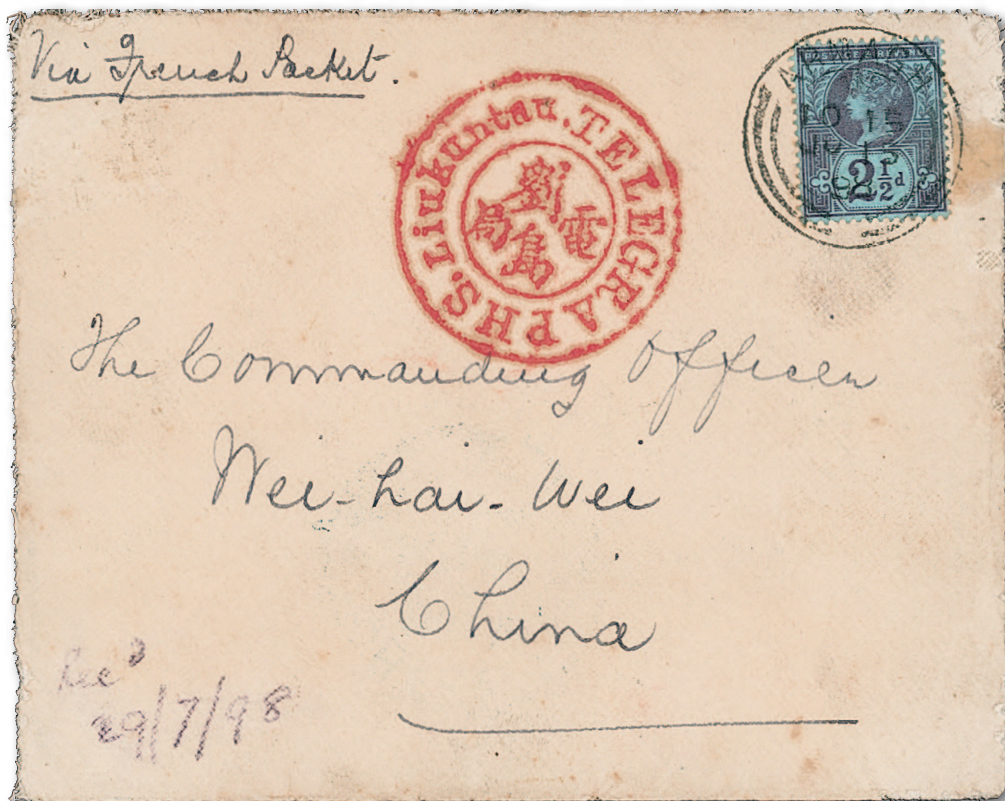 Via French Packet.
Liukuntau. TELEGRAPHS.
劉
局 電
島
POSTAGE & REVENUE
2½d
The Commanding Officer
Wei-hai-Wei
China
Recd
29/7/98